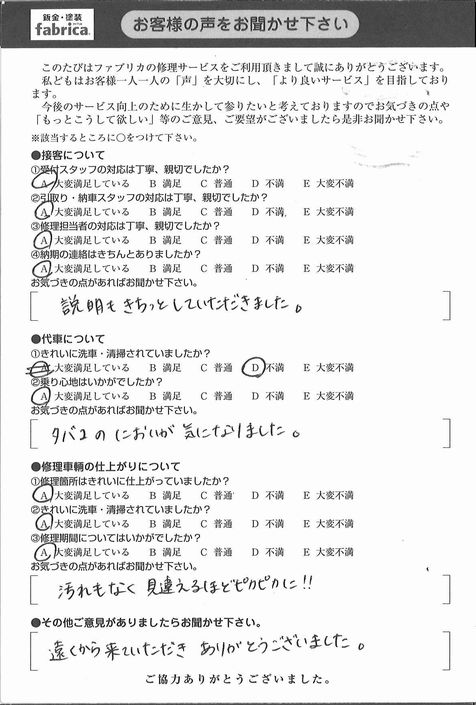 鈑金・塗装
fabrica.
お客様の声をお聞かせ下さい
このたびはファブリカの修理サービスをご利用頂きまして誠にありがとうございます。
私どもはお客様一人一人の「声」を大切にし、「より良いサービス」を目指しており
ます。
今後のサービス向上のために生かして参りたいと考えておりますのでお気づきの点や
「もっとこうして欲しい」等のご意見、ご要望がございましたら是非お聞かせ下さい。
※該当するところに○をつけて下さい。
●接客について
①受付スタッフの対応は丁寧、親切でしたか？
A 大変満足している B 満足 C 普通 D 不満 E 大変不満
②引取り・納車スタッフの対応は丁寧、親切でしたか？
A 大変満足している B 満足 C 普通 D 不満 E 大変不満
③修理担当者の対応は丁寧、親切でしたか？
A 大変満足している B 満足 C 普通 D 不満 E 大変不満
④納期の連絡はきちんとありましたか？
A 大変満足している B 満足 C 普通 D 不満 E 大変不満
お気づきの点があればお聞かせ下さい。
説明もきちっとしていただきました。
●代車について
①きれいに洗車・清掃されていましたか？
A 大変満足している B 満足 C 普通 D 不満 E 大変不満
②乗り心地はいかがでしたか？
A 大変満足している B 満足 C 普通 D 不満 E 大変不満
お気づきの点があればお聞かせ下さい。
タバコのにおいが気になりました。
●修理車輌の仕上がりについて
①修理箇所はきれいに仕上がっていましたか？
A 大変満足している B 満足 C 普通 D 不満 E 大変不満
②きれいに洗車・清掃されていましたか？
A 大変満足している B 満足 C 普通 D 不満 E 大変不満
③修理期間についてはいかがでしたか？
A 大変満足している B 満足 C 普通 D 不満 E 大変不満
お気づきの点があればお聞かせ下さい。
汚れもなく見違えるほどピカピカに!!
●その他ご意見がありましたらお聞かせ下さい。
遠くから来ていただきありがとうございました。
ご協力ありがとうございました。